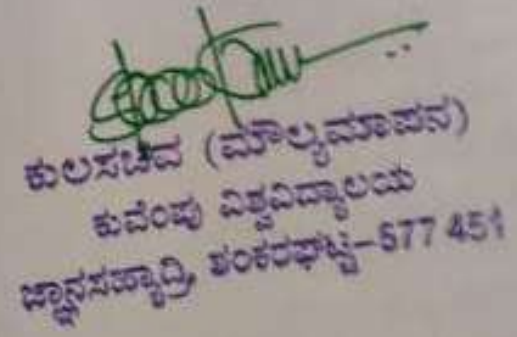 ಕುಲಸಚಿವ (ಮೌಲ್ಯಮಾಪನ)
ಕುವೆಂಪು ವಿಶ್ವವಿದ್ಯಾಲಯ
ಜ್ಞಾನಸಹ್ಯಾದ್ರಿ, ಶಂಕರಘಟ್ಟ-577 451